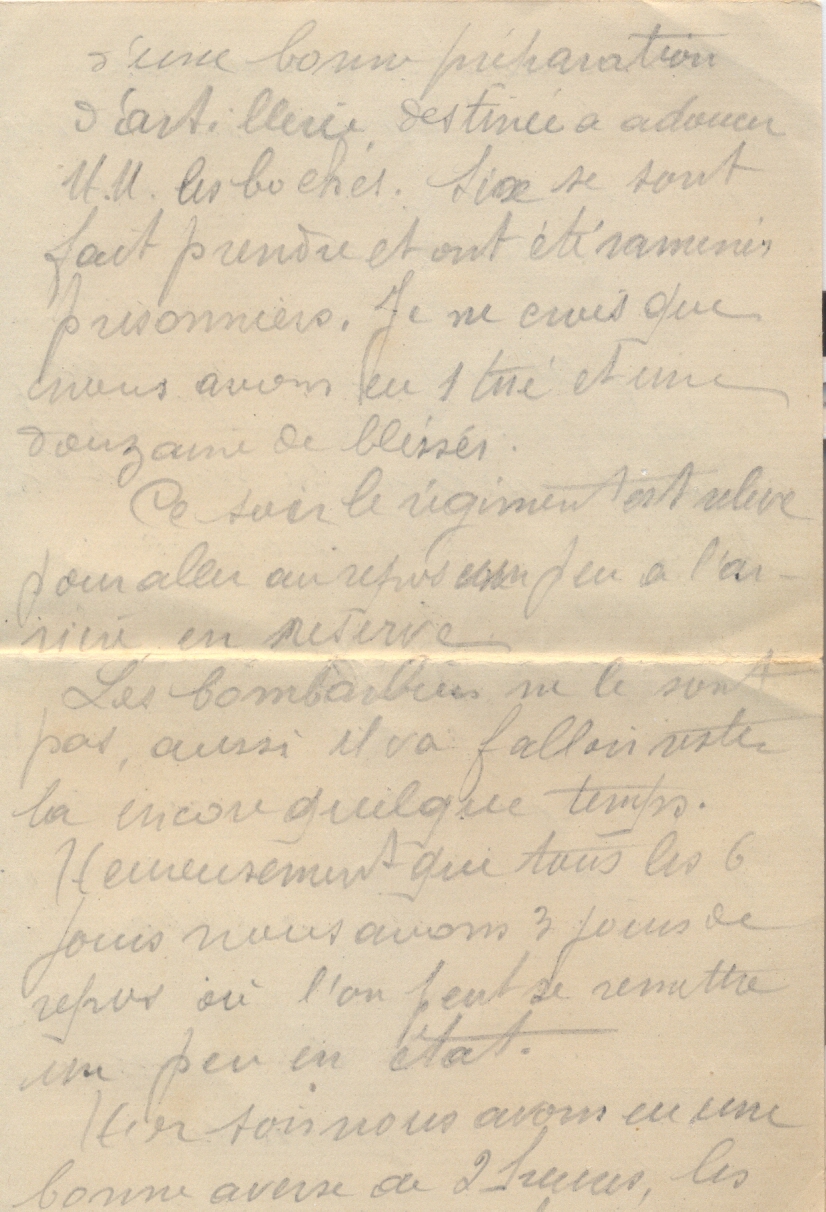 d'une bonne préparation
d'artillerie, destinée a adoucir
M.M. les boches. Six se sont
fait prendre et ont été ramenés
prisonniers. Je ne crois que
nous avons eu 1 tué et une
douzaine de bléssés.
Ce soir le régiment est relevé
pour aller au repos un peu a l'ar-
rière en reserve
Les bombardiers ne le sont
pas, aussi il va falloir rester
la encore quelque temps.
Heureusement que tous les 6
jours nous avons 3 jours de
repos où l'on peut se remettre
un peu en état.
Hier soir nous avons eu une
bonne averse de 2 heures, les